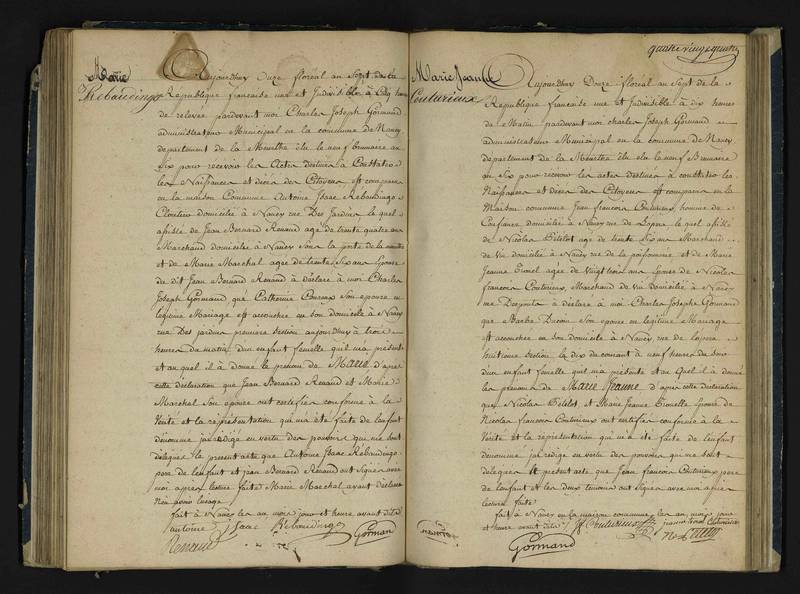 Marie
Rebaudingo
Aujourdhuy Onze floréal an Sept de la
République française une et Indivisible à Cinq heures
de relevée pardevant moi Charles Joseph Gormand
administrateur Municipal en la commune de Nancy
departement de la Meurthe élu le neuf brumaire an
six pour recevoir les Actes destinés à Constater
les Naissances et décès des Citoyens, est comparu
en la maison Commune Antoine Isaac Rebaudingo
domicilié à Nancy rue Des Jardins lequel
assisté de Jean Bernard Renaud age de trente quatre ans
Marchand domicilié à Nancy sous la porte de la
et de Marie Marchal agée de trente six ans épouse
de dit Jean Bernard Renaud à déclaré à moi Charles
Joseph Gormand que Catherine son épouse en
légitime Mariage est accouchée en son domicile à Nancy
rue Des jardins première section aujourdhuy à trois
heures du matin d'un enfant femelle qu'il m'a présenté
et auquel il à donné le prenom de Marie d'après
cette déclaration que Jean Bernard Renaud et Marie
Marchal Son épouse ont certifiée conforme à la
Vérité et la représentation qui m'a été faite de l'enfant
dénommé j'ai rédigé en vertu des pouvoirs qui me sont
délégués le présent acte que Antoine Isaac Rebaudingo
pere de l'enfant et jean Bernard Renaud ont Signé avec
moi après lecture faite Marie Marchal ayant déclaré
Non avoir l'usage
fait à Nancy les an mois jour et heure avant dits
antoine isaac Rebaudingo
Renaud Gorman
quatre vingt quatre
Marie Jeanne
Couturieux
Aujourdhuy Douze floréal an Sept de la
République française une et Indivisible à dix heures
du Matin pardevant moi charles Joseph Gormand
administrateur Municipal en la commune de Nancy
departement de la Meurthe élu le neuf Brumaire
an Six pour recevoir les actes destinés à constater les
Naissances et décès des Citoyens est comparu en la
Maison commune Jean françois Couturieux homme de
Confiance domicilié à Nancy rue de lequel assisté
de Nicolas Petelot agé de trente Six ans Marchand
de Vin domicilié à Nancy rue de la poissonnerie et de Marie
Jeanne agée de vingt Six ans épouse de Nicolas
François Couturieux, Marchand de Vin domicilié à Nancy
rue à déclaré à moi Charles Josephe Gormand
que Barbe son épouse en legitime Mariage
est accouchée en son domicile à Nancy rue de
huitieme section le dix du courant à neuf heures du soir
d'un enfant femelle qu'il m'a présenté et au Quel il à donné
les prénoms de Marie Jeanne d'après cette déclaration
que Nicolas Petelot et Marie Jeanne épouse de
Nicolas françois Couturieux ont certifiée conforme à la
Vérité et la représentation qui m'a été faite de l'enfant
dénommé j'ai rédigé en vertu des pouvoirs qui me sont
délégués le présent acte que Jean françois Couturieux pere
de l'enfant et les deux témoins ont signé avec moi après
lecture faite
fait à Nancy en la maison commune les an mois jour
et heure avant dits J. f. Couturieux
Gormand